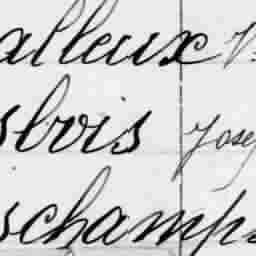 alleux V
sbois Josep
schamps